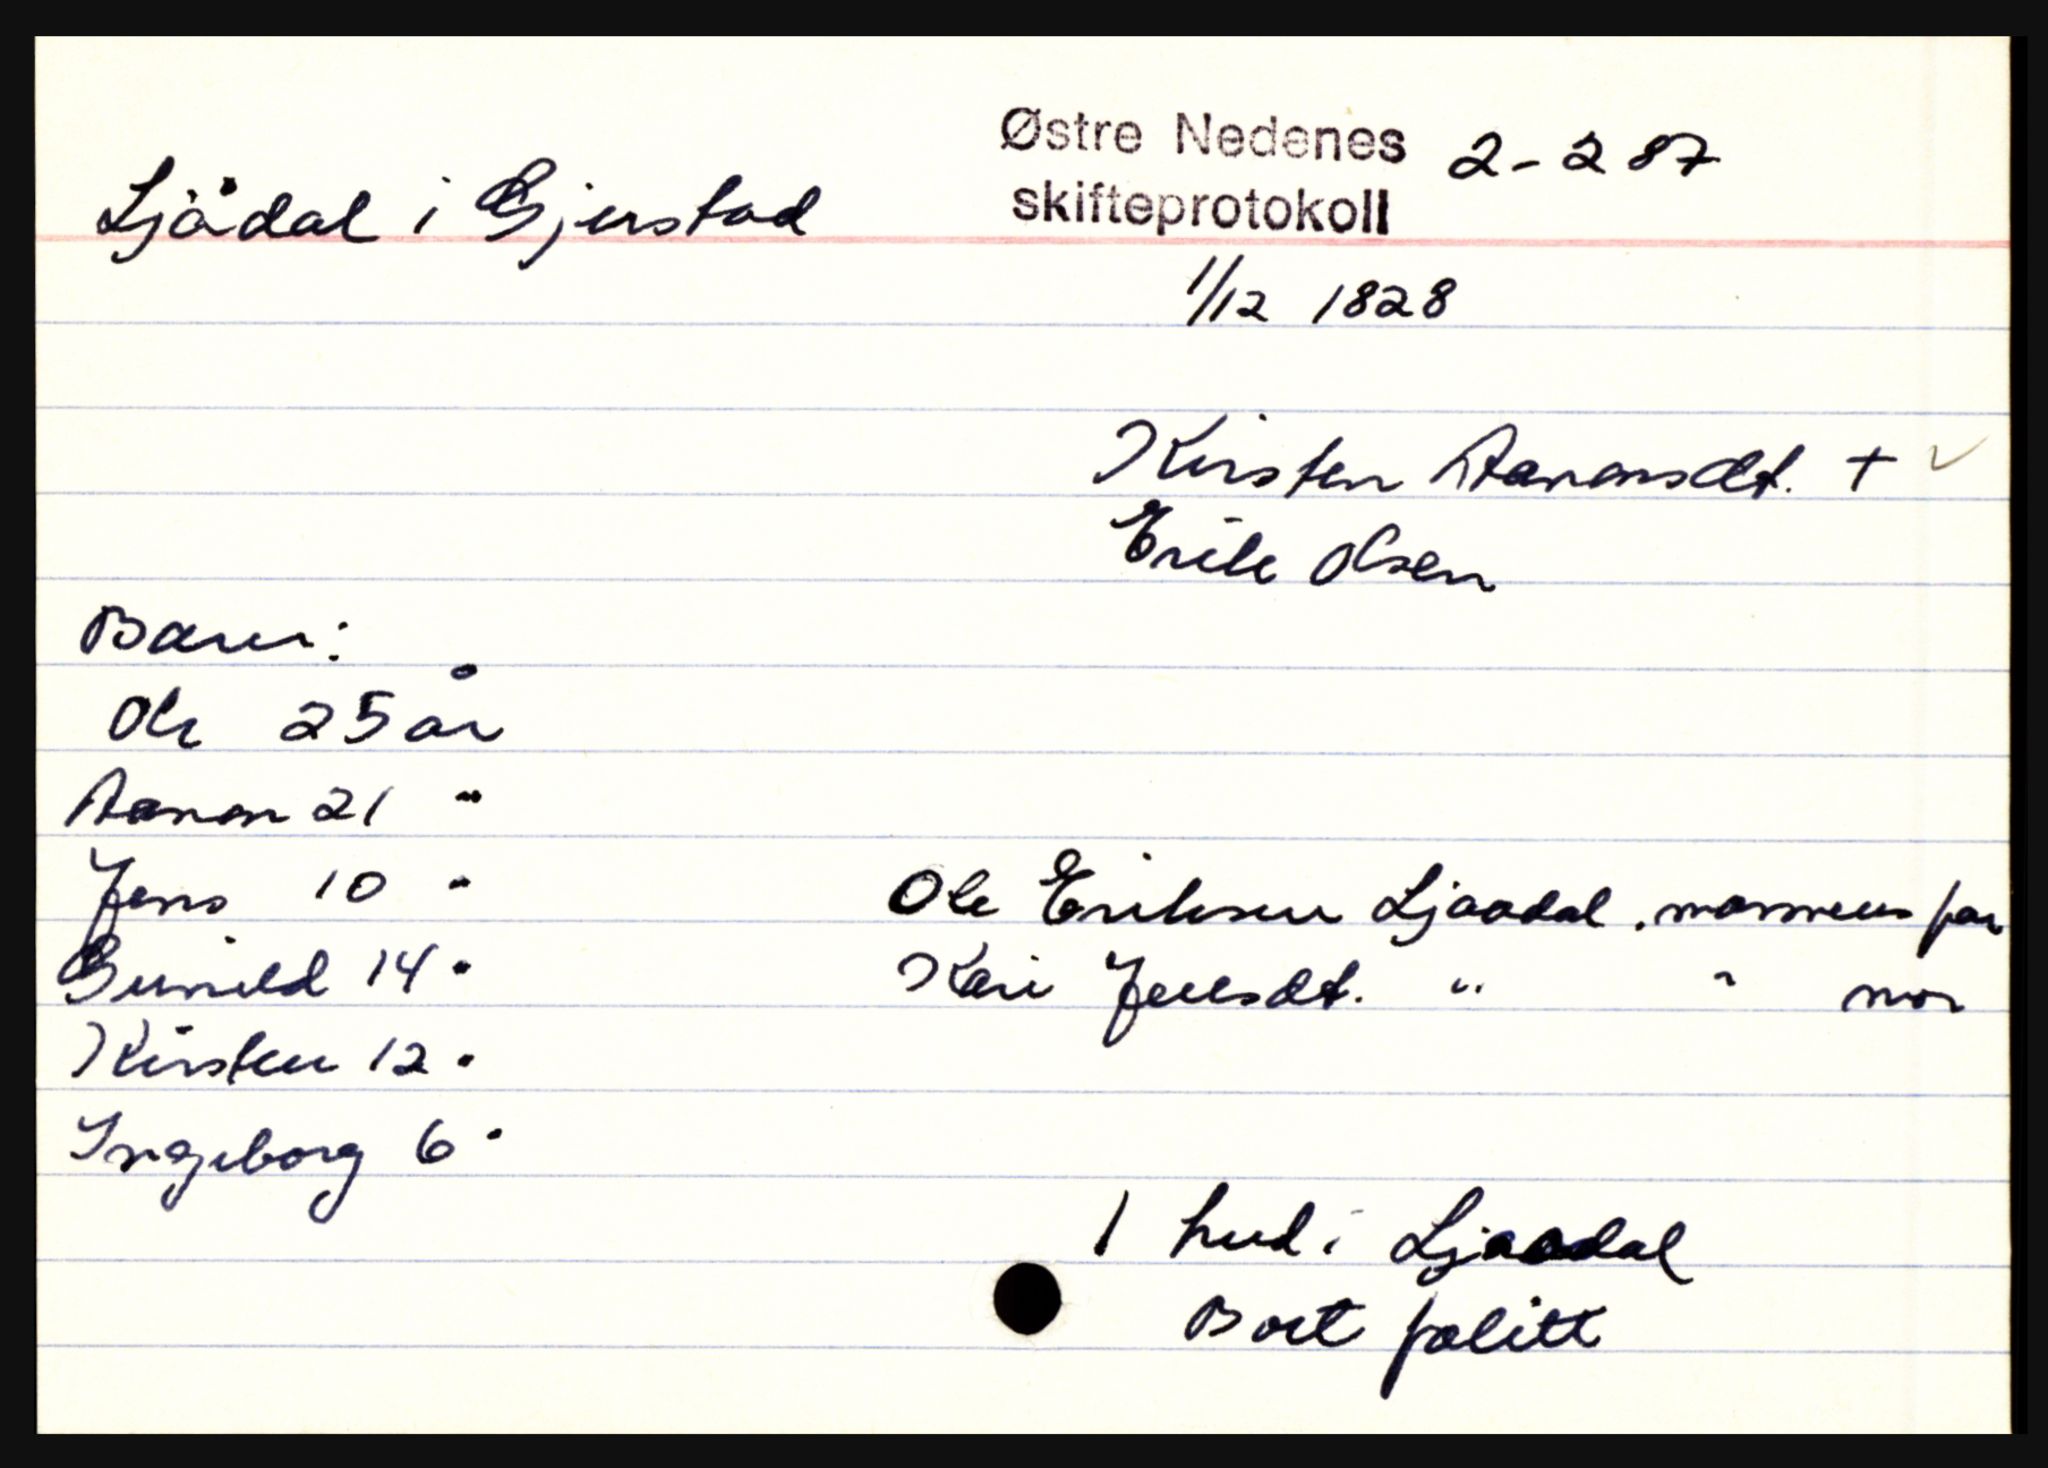 Østre Nedenes 2-287
Ljådal i Gjerstad skifteprotokoll
1/12 1828
Kirsten Aanonsdt. + ✓
Erik Olsen
Barn:
Ole 25 år
Aanon 21 "
Jens 10 " Ole Eriksen Ljaadal, mannens far
Gunild 14 " Kari Jensdt. " " mor
Kirsten 12 "
Ingeborg 6 "
1 hud i Ljaadal
Bort falitt